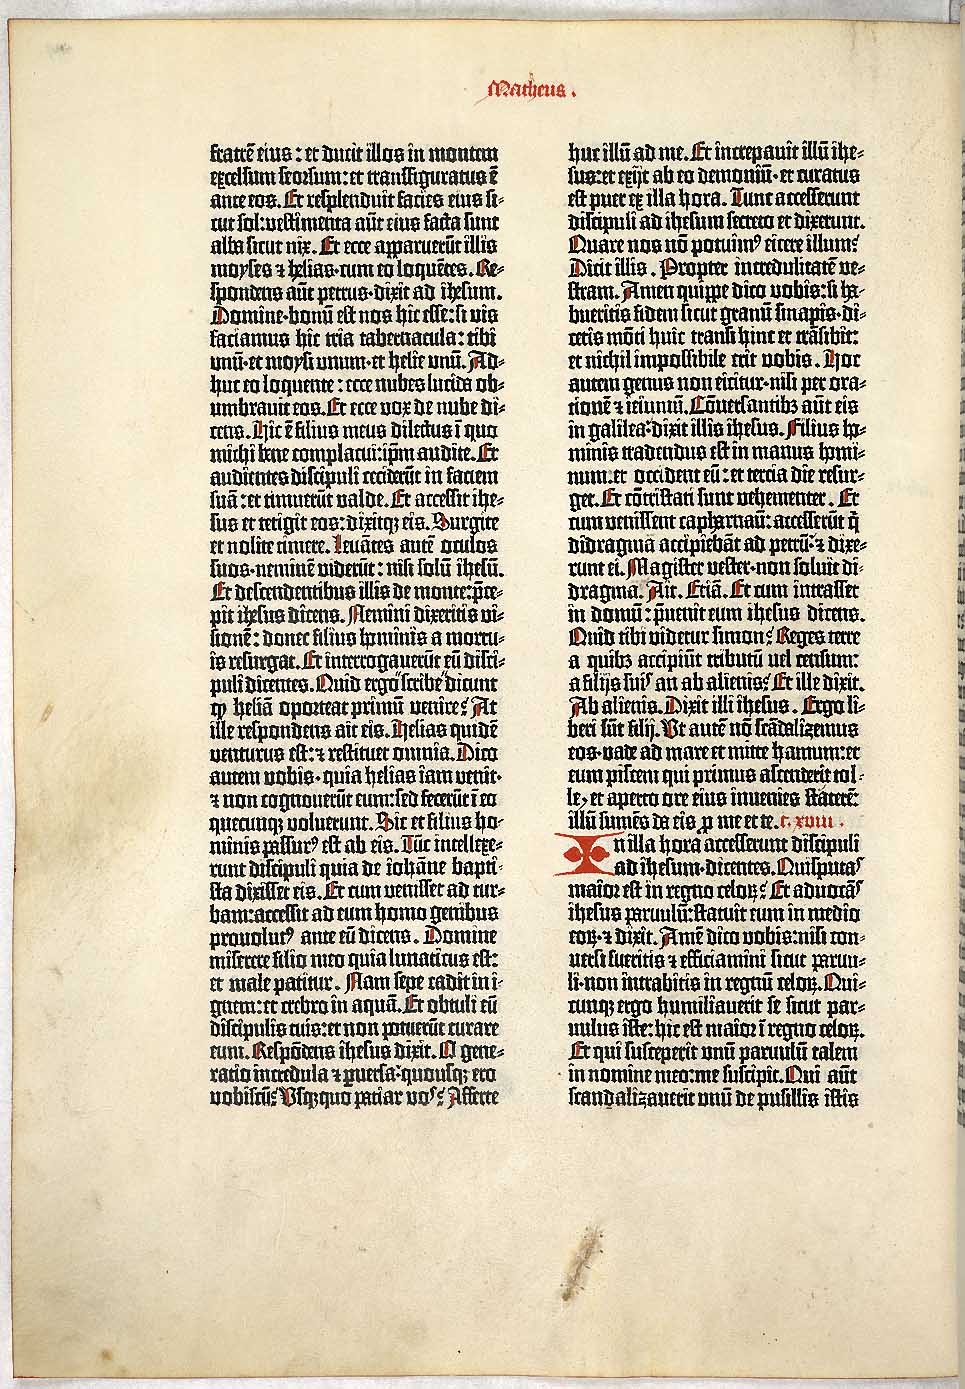 Matheus.
fratrē eius: et ducit illos in montem
excelsum seorsum: et transfiguratus ē
ante eos. Et resplenduit facies eius si-
cut sol: vestimenta aūt eius facta sunt
alba sicut nix. Et ecce apparuerūt illis
moyses ⁊ helias cum eo loquētes. Re-
spondens aūt petrus dixit ad ihesum.
Domine bonū est nos hic esse: si vis
faciamus hic tria tabernacula: tibi
unū et moysi unum et helie unū. Ad-
huc eo loquente: ecce nubes lucida ob-
umbravit eos. Et ecce vox de nube di-
cens. Hic ē filius meus dilectus ī quo
michi bene complacui: ip̄m audite. Et
audientes discipuli ceciderūt in faciem
suā: et timuerūt valde. Et accessit ihe-
sus et tetigit eos: dixitqȝ eis. Surgite
et nolite timere. Levātes autē oculos
suos neminē viderūt: nisi solū ihesū.
Et descendentibus illis de monte: p̄ce-
pit ihesus dicens. Nemini dixeritis vi-
sionē: donec filius hominis a mortu-
is resurgat. Et interrogaverūt eū disci-
puli dicentes. Quid ergo scribe dicunt
ꝙ heliā oporteat primū venire? At
ille respondens ait eis. Helias quidē
venturus est: ⁊ restituet omnia. Dico
autem vobis quia helias iam venit
⁊ non cognoverūt eum: sed fecerūt ī eo
quecunqȝ voluerunt. Sic et filius ho-
minis passurꝰ est ab eis. Tūc intellexe-
runt discipuli quia de iohāne bapti-
sta dixisset eis. Et cum venisset ad tur-
bam: accessit ad eum homo genibus
provolutꝰ ante eū dicens. Domine
miserere filio meo quia lunaticus est:
et male patitur. Nam sepe cadit in i-
gnem: et crebro in aquā. Et obtuli eū
discipulis tuis: et non potuerūt curare
eum. Respōdens ihesus dixit. O gene-
ratio incredula ⁊ ꝑversa: quousqȝ ero
vobiscū? Usqȝquo patiar voˢ? Afferte
huc illū ad me. Et increpavit illū ihe-
sus: et exijt ab eo demoniū et curatus
est puer ex illa hora. Tunc accesserunt
discipuli ad ihesum secreto et dixerunt.
Quare nos nō potuimꝰ eicere illum?
Dicit illis. Propter incredulitatē ve-
stram. Amen quippe dico vobis: si ha-
bueritis fidem sicut granū sinapis di-
cetis mōti huic transi hinc et trāsibit:
et nichil impossibile erit vobis. Hoc
autem genus non eicitur nisi per ora-
tionē ⁊ ieiuniū. Cōversantibȝ aūt eis
in galilea: dixit illis ihesus. Filius ho-
minis tradendus est in manus homi-
num: et occident eū: et tercia die resur-
get. Et cōtristati sunt vehementer. Et
cum venissent capharnaū: accesserūt q̄
didragma accipiebāt ad petrū: ⁊ dixe-
runt ei. Magister vester non soluit di-
dragma. Ait. Etiā. Et cum intrasset
in domū: p̄venit eum ihesus dicens.
Quid tibi videtur simon? Reges terre
a quibȝ accipiūt tributū vel censum:
a filijs suiˢ an ab alienis? Et ille dixit.
Ab alienis. Dixit illi ihesus. Ergo li-
beri sūt filij. Ut autē nō scādalizemus
eos vade ad mare et mitte hamum: et
eum piscem qui primus ascenderit tol-
le, et aperto ore eius invenies staterē:
illū sumēs da eis ꝓ me et te. c. xviii.
In illa hora accesserunt discipuli
ad ihesum dicentes. Quis putaˢ
maior est in regno celoꝝ? Et advocāˢ
ihesus parvulū: statuit eum in medio
eoꝝ ⁊ dixit. Amē dico vobis: nisi con-
versi fueritis ⁊ efficiamini sicut parvu-
li non intrabitis in regnū celoꝝ. Qui-
cunqȝ ergo humiliaverit se sicut par-
vulus iste: hic est maior ī regno celoꝝ.
Et qui susceperit unū parvulū talem
in nomine meo: me suscipit. Qui aūt
scandalizaverit unū de pusillis istis